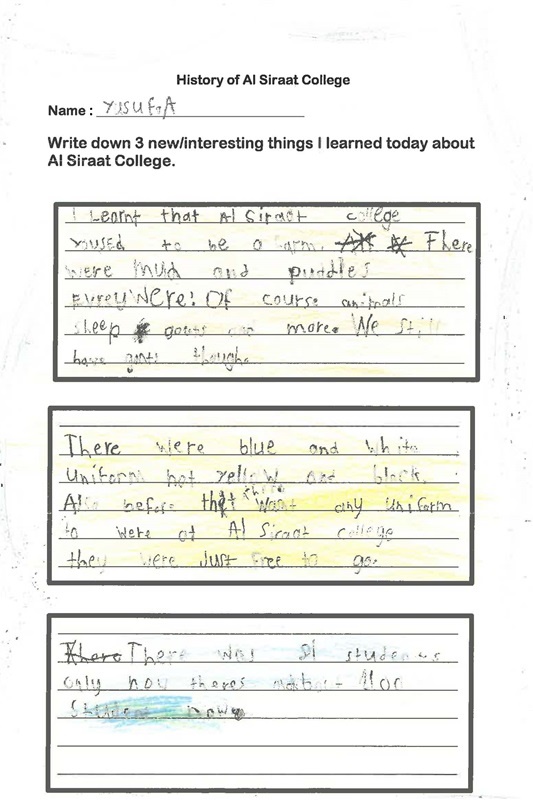 History of Al Siraat College
Name : YUSUF.A
Write down 3 new/interesting things I learned today about
Al Siraat College.
I Learnt that Al Siraat college
yoused to be a farm. There
were mud and puddles
Evreywere! Of course animals
sheep goats and more. We still
have goats though.
There were blue and white
uniform not yellow and black.
Also before that there wasnt any uniform
to were at Al Siraat college
they were Just free to go.
There was students
only now theres about
Student now